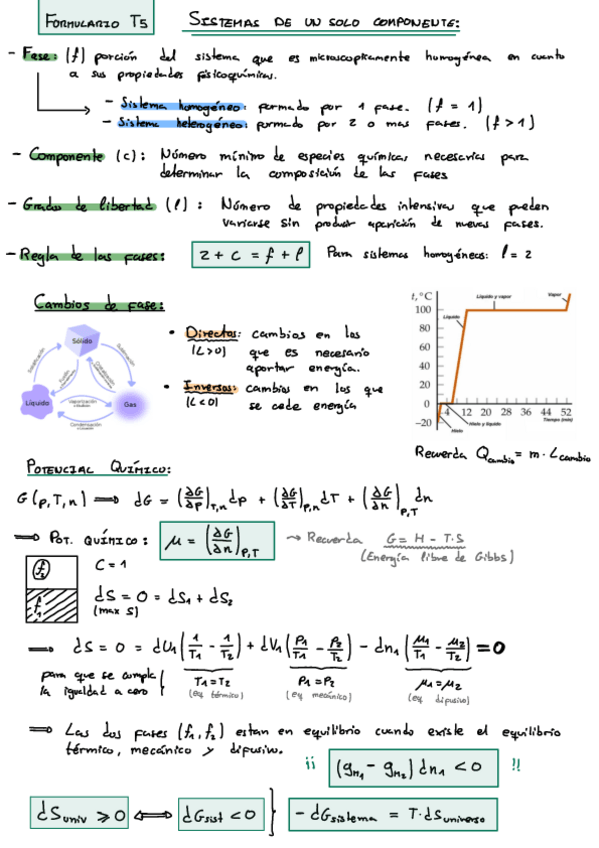 FORMULARIO T5
SISTEMAS DE UN SOLO COMPONENTE:
- Fase: (f) porción del sistema que es microscopicamente homogénea en cuanto
a sus propiedades fisicoquímicas.
- Sistema homogéneo: formado por 1 fase. (f = 1)
- Sistema heterogéneo: formado por 2 o mas fases. (f > 1)
- Componente (c): Número mínimo de especies químicas necesarias para
determinar la composición de las fases
- Grados de libertad (l): Número de propiedades intensivas que pueden
variarse sin producir aparición de nuevas fases.
- Regla de las fases: 2 + c = f + l Para sistemas homogéneos: l = 2
Cambios de fase:
Sólido
Líquido
Gas
Vaporización
Condensación
• Directos: cambios en los
(L>0) que es necesario
aportar energía.
• Inversos: cambios en los que
(L<0) se cede energía
t, °C
Líquido y vapor
Vapor
Líquido
100
80
60
40
20
0
-20
4 12 20 28 36 44 52
Tiempo (min)
Hielo y líquido
Hielo
Recuerda Qcambio = m · Lcambio
POTENCIAL QUÍMICO:
G(p,T,n) ⟹ dG = (∂G/∂p)T,n dp + (∂G/∂T)p,n dT + (∂G/∂n)p,T dn
⟹ POT. QUÍMICO: μ = (∂G/∂n)P,T → Recuerda G = H - T·S
(Energía libre de Gibbs)
f2
f1
C = 1
dS = 0 = dS1 + dS2
(max S)
⟹ dS = 0 = dU1(1/T1 - 1/T2) + dV1(P1/T1 - P2/T2) - dn1(μ1/T1 - μ2/T2) = 0
para que se cumpla
la igualdad a cero
T1=T2 P1=P2 μ1=μ2
(eq térmico) (eq mecánico) (eq difusivo)
⟹ Las dos fases (f1, f2) estan en equilibrio cuando existe el equilibrio
térmico, mecánico y difusivo.
¡¡ (gm1 - gm2) dn1 < 0 !!
dSuniv ⩾ 0 ⟺ dGsist < 0 } - dGsistema = T·dSuniverso